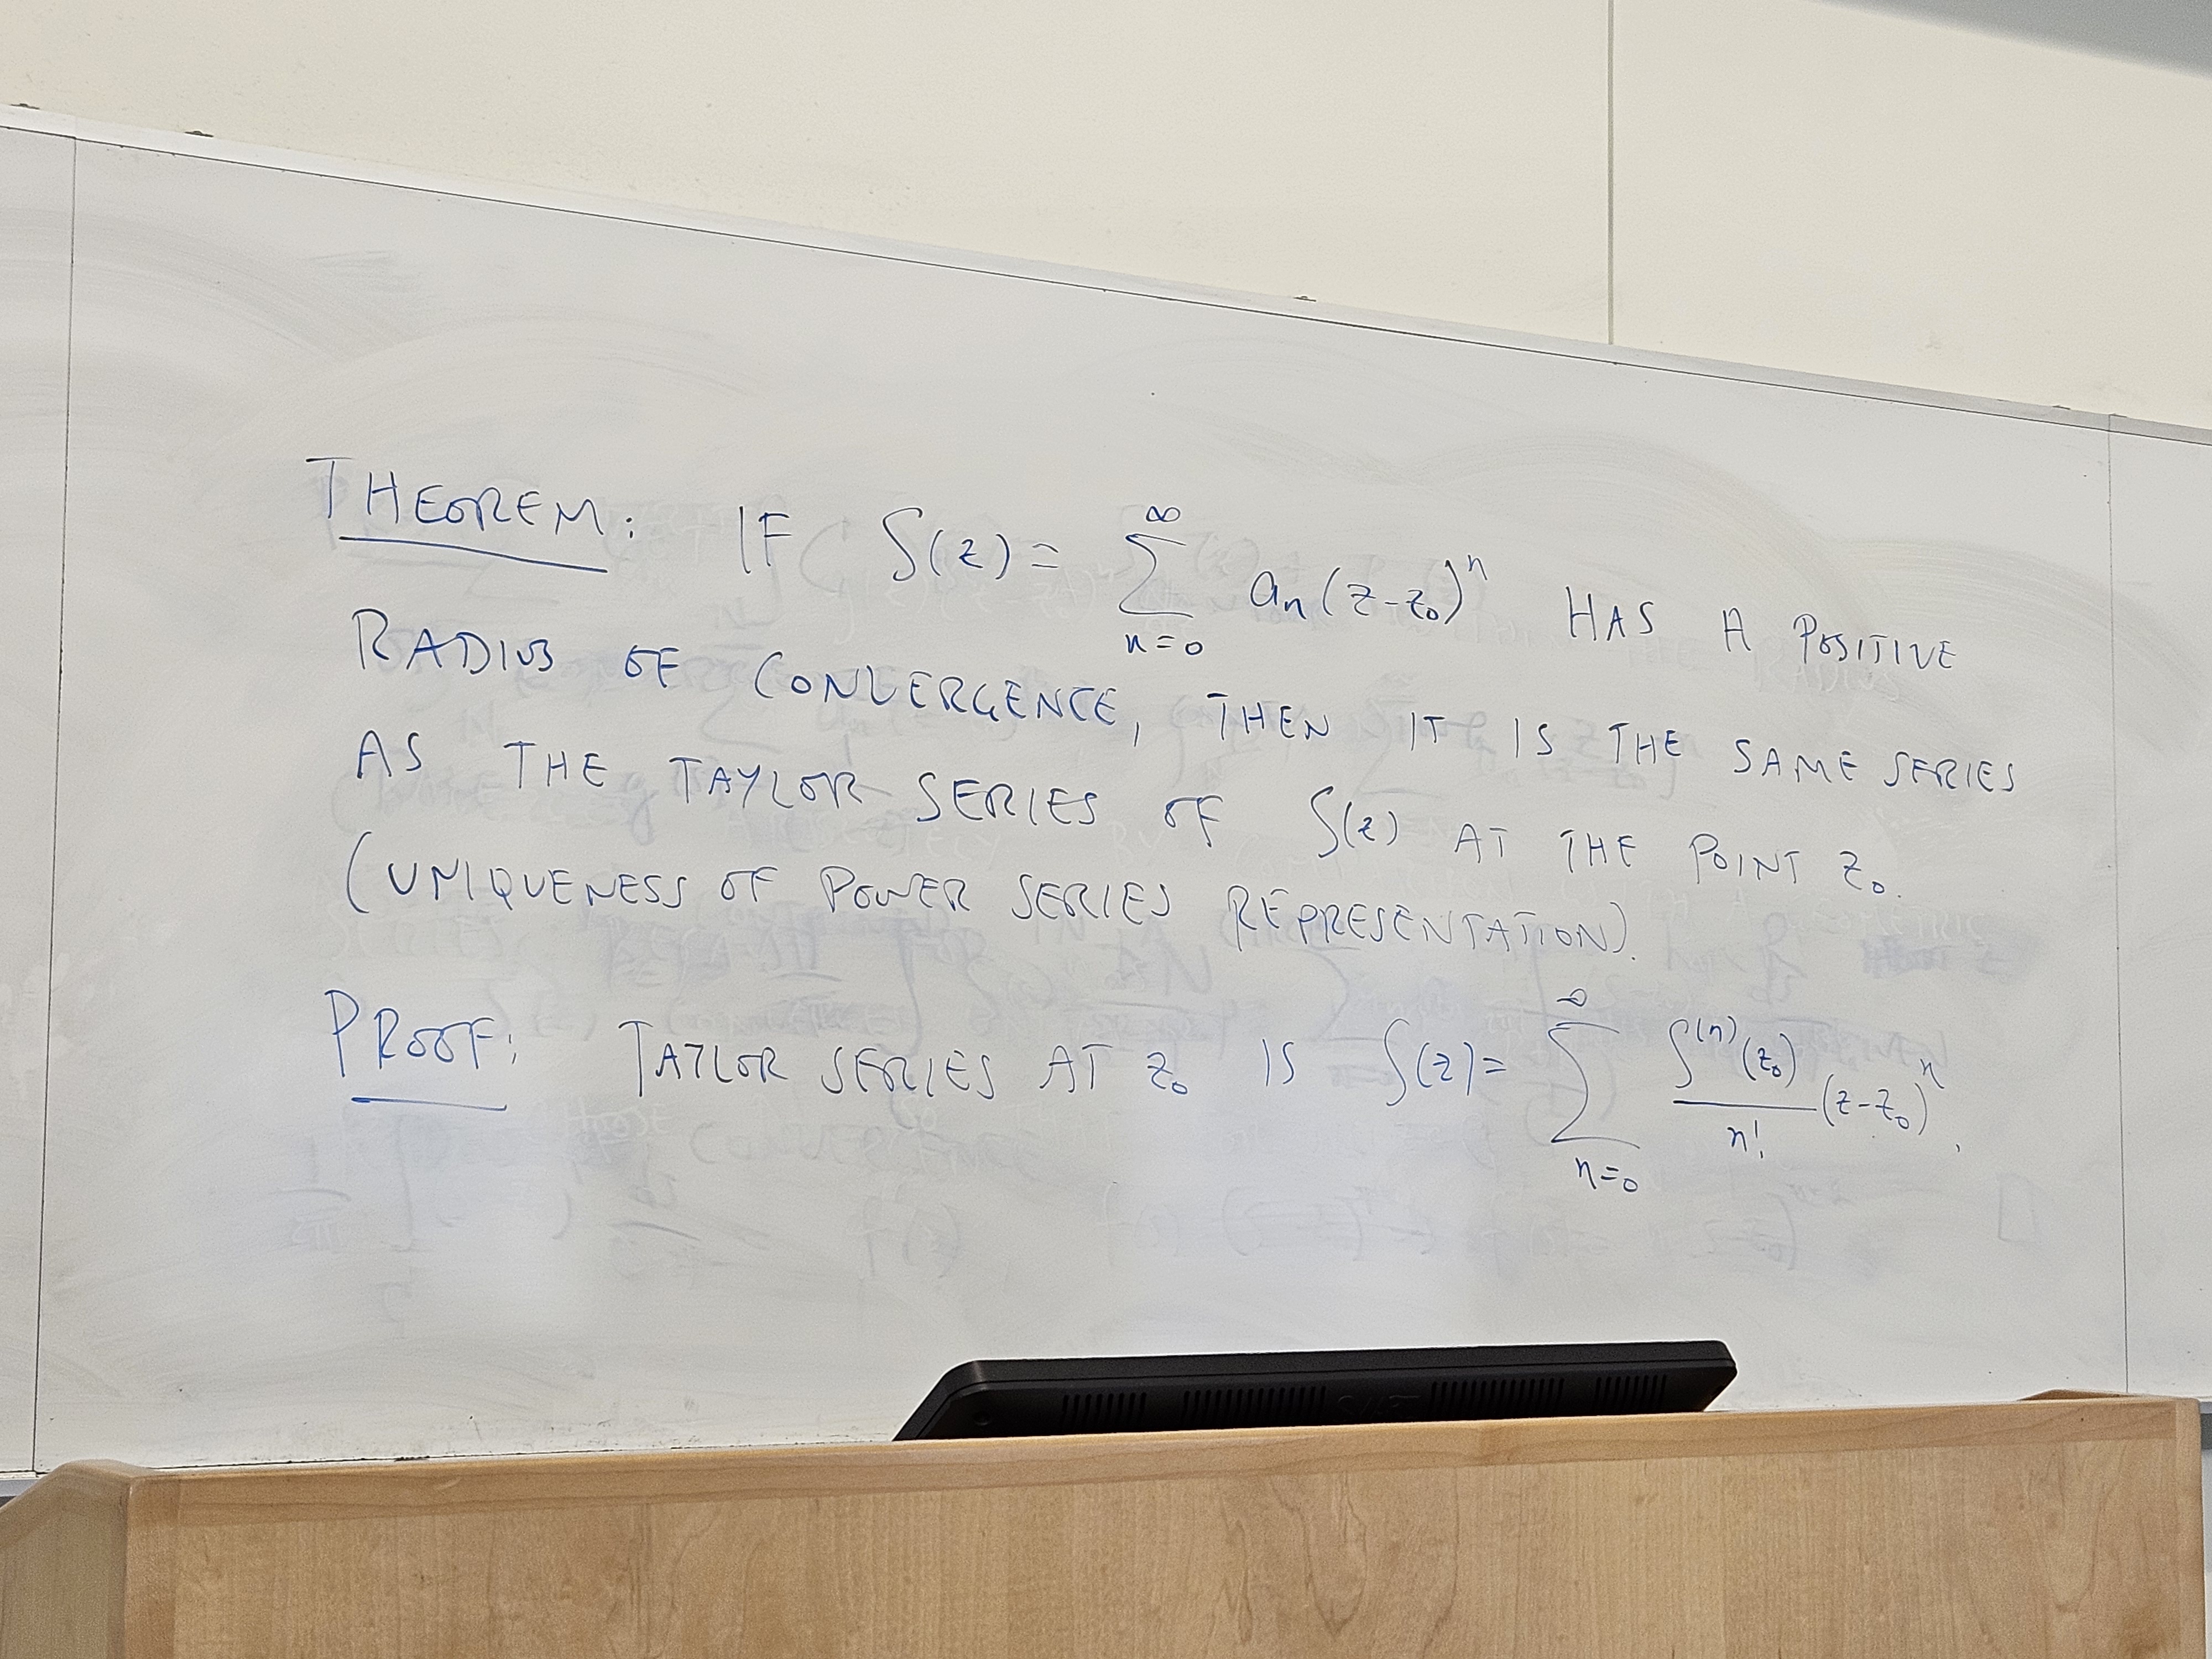 THEOREM: IF f(z) = ∑_{n=0}^{∞} a_n (z-z_0)^n HAS A POSITIVE
RADIUS OF CONVERGENCE, THEN IT IS THE SAME SERIES
AS THE TAYLOR SERIES OF f(z) AT THE POINT z_0.
(UNIQUENESS OF POWER SERIES REPRESENTATION).
PROOF: TAYLOR SERIES AT z_0 IS f(z) = ∑_{n=0}^{∞} f^{(n)}(z_0)/n! (z-z_0)^n.